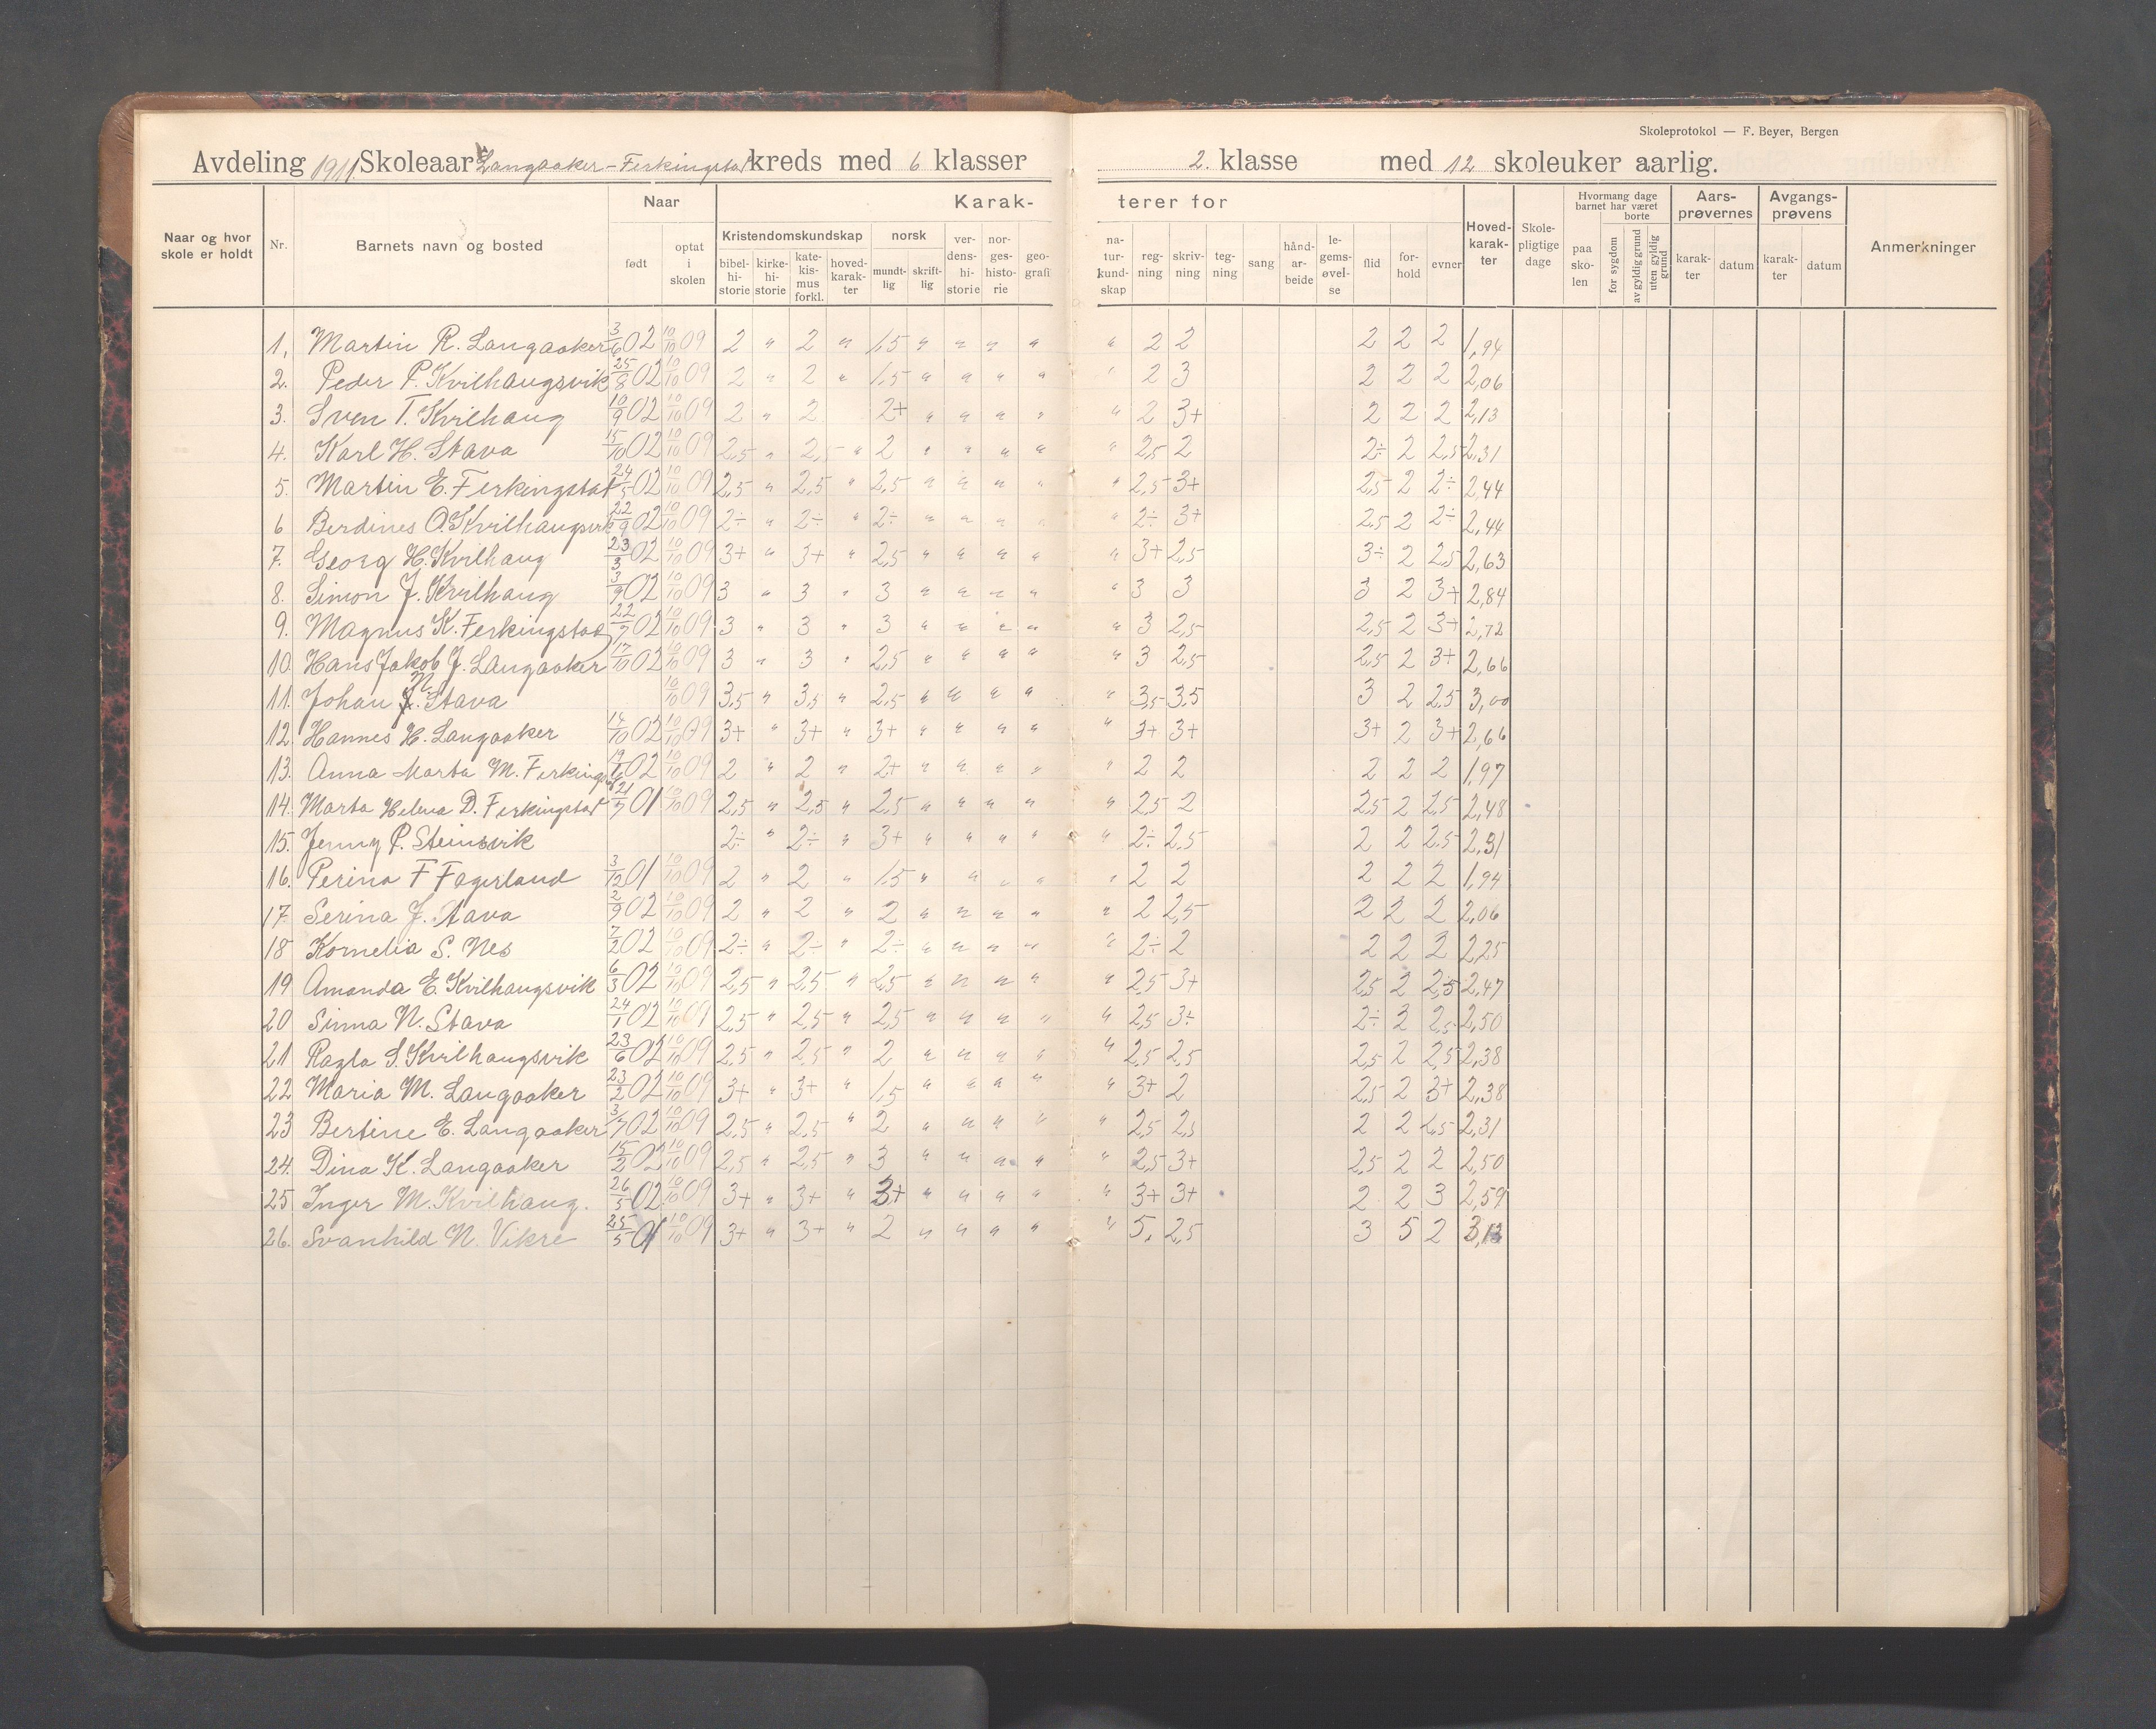 Skoleprotokol — F. Beyer, Bergen
Avdeling 1911. Skoleaar Langaaker-Ferkingstad kreds med 6 klasser 2. klasse med 12 skoleuker aarlig.
Naar og hvor skole er holdt Nr. Barnets navn og bosted Naar født optat i skolen Karakterer for Kristendomskundskap bibelhistorie kirkehistorie katekismus forkl. hovedkarakter norsk mundtlig skriftlig verdenshistorie norgeshistorie geografi naturkundskap regning skrivning tegning sang håndarbeide legemsøvelse flid forhold evner Hovedkarakter Skolepligtige dage Hvormang dage barnet har været paa skolen borte for sygdom av gyldig grund uten gyldig grund Aarsprøvernes karakter datum Avgangsprøvens karakter datum Anmerkninger
1. Martin R. Langaaker 3/6 02 10/10 09 2 " 2 " 1,5 " " " " " 2 2 2 2 2 1,94
2. Peder P. Kvilhaugsvik 25/8 02 10/10 09 2 " 2 " 1,5 " " " " " 2 3 2 2 2 2,06
3. Sven T. Kvilhaug 10/9 02 10/10 09 2 " 2 2+ " " " " " 2 3+ 2 2 2 2,13
4. Karl H. Stava 15/10 02 10/10 09 2,5 " 2,5 " 2 " " " " " 2,5 2 2÷ 2 2,5 2,31
5. Martin E. Ferkingstad 24/5 02 10/10 09 2,5 " 2,5 " 2,5 " " " " " 2,5 3+ 2,5 2 2÷ 2,44
6 Berdines O. Kvilhaugsvik 22/9 02 10/10 09 2÷ " 2÷ " 2÷ " " " " " 2÷ 3+ 2,5 2 2÷ 2,44
7. Georg H. Kvilhaug 23/3 02 10/10 09 3+ " 3+ " 2,5 " " " " " 3+ 2,5 3÷ 2 2,5 2,63
8. Simon J. Kvilhaug 3/9 02 10/10 09 3 " 3 " 3 " " " " " 3 3 3 2 3+ 2,84
9. Magnus K. Ferkingstad 22/7 02 10/10 09 3 " 3 " 3 " " " " " 3 2,5 2,5 2 3+ 2,72
10. Hans Jakob J. Langaaker 17/10 02 10/10 09 3 " 3 " 2,5 " " " " " 3 2,5 2,5 2 3+ 2,66
11. Johan N. Stava 10/10 09 3,5 " 3,5 " 2,5 " " " " " 3,5 3,5 3 2 2,5 3,00
12. Hannes H. Langaaker 14/10 02 10/10 09 3+ " 3+ " 3+ " " " " " 3+ 3+ 3+ 2 3+ 2,66
13. Anna Marta M. Ferkingstad 19/6 02 10/10 09 2 " 2 " 2+ " " " " " 2 2 2 2 2 1,97
14. Marta Helena D. Ferkingstad 21/7 01 10/10 09 2,5 " 2,5 " 2,5 " " " " " 2,5 2 2,5 2 2,5 2,48
15. Jenny P. Steinsvik 2÷ " 2÷ " 3+ " " " " " 2÷ 2,5 2 2 2,5 2,31
16. Perina F Fagerland 3/12 01 10/10 09 2 " 2 " 1,5 " " " " " 2 2 2 2 2 1,94
17 Serina J. Stava 2/9 02 10/10 09 2 " 2 " 2 " " " " " 2 2,5 2 2 2 2,06
18 Kornelia S. Nes 7/2 02 10/10 09 2÷ " 2÷ " 2÷ " " " " " 2÷ 2 2 2 2 2,25
19 Amanda E. Kvilhaugsvik 6/3 02 10/10 09 2,5 " 2,5 " 2,5 " " " " " 2,5 3+ 2,5 2 2,5 2,47
20 Sinna N. Stava 24/1 02 10/10 09 2,5 " 2,5 " 2,5 " " " " " 2,5 3÷ 2÷ 2 2,5 2,50
21 Ragla S. Kvilhaugsvik 23/6 02 10/10 09 2,5 " 2,5 " 2 " " " " " 2,5 2,5 2,5 2 2,5 2,38
22 Maria M. Langaaker 23/2 02 10/10 09 3+ " 3+ " 1,5 " " " " " 3+ 2 2,5 2 3+ 2,38
23 Bertine E. Langaaker 3/7 02 10/10 09 2,5 " 2,5 " 2 " " " " " 2,5 2,5 2 2 2,5 2,31
24. Dina K. Langaaker 15/2 02 10/10 09 2,5 " 2,5 " 3 " " " " " 2,5 3+ 2,5 2 2 2,50
25 Inger M. Kvilhaug. 26/5 02 10/10 09 3+ " 3+ " 3+ " " " " " 3+ 3+ 2 2 3 2,59
26. Svanhild N. Vikre 25/5 01 10/10 09 3+ " 3+ " 2 " " " " " 5, 2,5 3 5 2 3,13